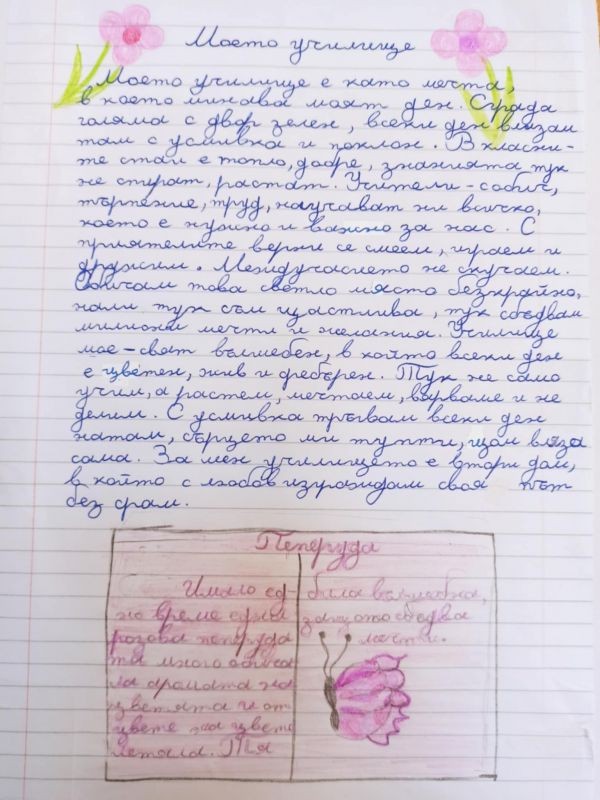 Моето училище
Моето училище е като мечта,
в което минава моят ден. Сграда
голяма с двор зелен, всеки ден влизам
там с усмивка и поклон. В класни-
те стаи е топло, добре, знанията тук
не спират, растат. Учители - с обич,
търпение, труд, научават ни всичко,
което е нужно и важно за нас. С
приятелите верни се смеем, играем и
дружим. Междучасието не скучаем.
Обичам това светло място безкрайно,
нали тук съм щастлива, тук сбъдвам
милиони мечти и желания. Училище
мое - свят вълшебен, в който всеки ден
е цветен, жив и сребърен. Тук не само
учим, а растем, мечтаем, вярваме и не
делим. С усмивка тръгвам всеки ден
натам, сърцето ми тупти, щом вляза
сама. За мен училището е втори дом,
в който с любов изграждам своя път
без срам.
Пеперуда
Имало ед-
но време една
розова пеперуда
тя много обича
ла аромата на
цветята и от
цвете на цвете
летяла. Тя
била вълшебна,
защото сбъдва
мечти.